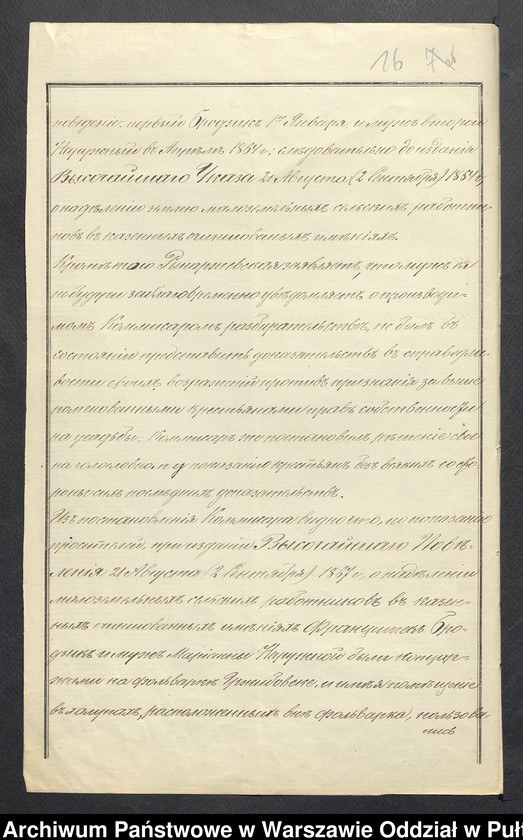 16
поведеніе: первый Бродзикъ 1го Января, и мужъ второй
Наружный въ Апрѣлѣ 1864 г.; слѣдовательно до изданія
Высочайшаго Указа 21 Августа (2 Сентября) 1864 г,
о надѣленіи землею малоземельныхъ сельскихъ работни-
ковъ въ казенныхъ очиншованыхъ имѣніяхъ.
Кромѣ того заявляетъ, что мужъ ея
не будучи заблаговременно увѣдомленъ о производи-
момъ Коммисаромъ разбирательствѣ, не былъ въ
состояніи представить доказательствъ въ справедли-
вости своихъ возраженій противъ признанія за выше
поименованными крестьянами правъ собственности
на усадьбы. Коммисаръ же постановилъ рѣшеніе свое
на голословномъ показаніи крестьянъ безъ всякихъ со сто-
роны сихъ послѣднихъ доказательствъ.
Изъ постановленія Коммисара видно что, по показанію
просителей, при изданіи Высочайшаго Повѣ-
ленія 21 Августа (2 Сентября) 1864 г, о надѣленіи
малоземельныхъ сельскихъ работниковъ въ казен-
ныхъ очиншованныхъ имѣніяхъ Францишекъ Бро-
дзикъ и мужъ Маріанны Наружной были
на фольваркѣ и имѣя помѣщеніе
въ халупахъ, расположенныхъ внѣ фольварка, пользова-
лись
Archiwum Państwowe w Warszawie Oddział w Puł